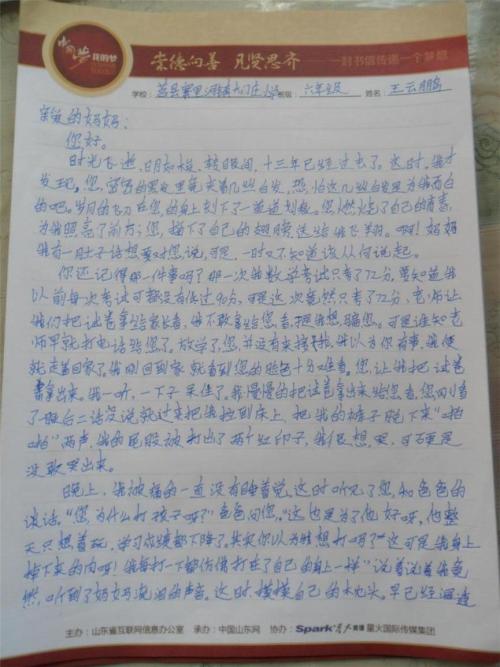 中国梦 我的梦
崇德向善 见贤思齐 一封书信传递一个梦想
学校：莒县寨里河镇大门庄小学 班级：六年级 姓名：王云鹏
亲爱的妈妈：
您好。
时光飞逝，日月如梭，转眼间，十三年已经过去了。这时，我才
发现，您，密密的黑发里夹夹着几丝白发，恐怕这几丝白发是为我而白
的吧。岁月的飞刀在您的身上刻下了一道道划痕。您燃烧了自己的青春，
为我照亮了前方；您，接下了自己的翅膀送给我飞翔。啊！妈妈
我有一肚子话想要对您说，可是，一时又不知道该从何说起。
你还记得那一件事吗？那一次我数学考试只考了72分，要知道我
以前每次考试可都没有低过90分，可是这次竟然只考了72分，老师让
我们把试卷拿给家长看，我不敢拿给您看，于是我想骗您。可是谁知老
师早就打电话给您了。放学了，您并没有来接我，我以为你有事，我便
就走着回家了。我刚回到家就看到您的脸色十分难看。您让我把试卷
拿出来。我一听，一下子呆住了。我慢慢的把试卷拿出来给您看，您
了一眼后二话没说就过来把我拉到床上，把我的裤子脱下来“啪
啪”两声，我的屁股被打出了两个红印子，我很想哭，可还是
没敢哭出来。
晚上，我被疼的一直没有睡着觉，这时听见了您和爸爸的
谈话。“您为什么打孩子呀？”爸爸问您，“这也是为了他好呀。他整
天只想着玩，学习成绩都下降了。其实你以为我想打吗？”这可是我身上
掉下来的肉呀！我每打一下都仿佛打在了自己的身上一样”说着说着我竟
然，听到了妈妈流泪的声音，这时，摸摸自己的枕头。早已经湿透
主办：山东省互联网信息办公室 承办：中国山东网 协办：Spark 星火英语 星火国际传媒集团